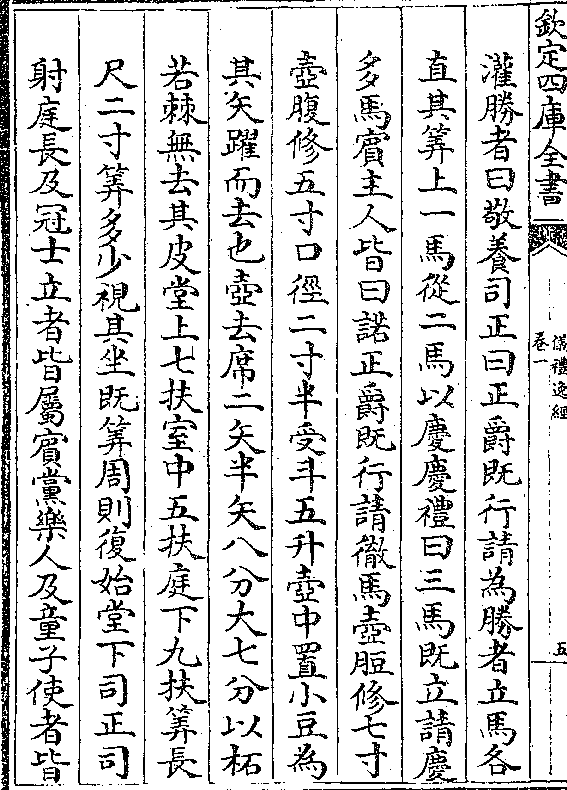 欽定四庫全書
儀禮逸經
卷一
五
灌勝者曰敬養司正曰正爵既行請為勝者立馬各
直其筭上一馬從二馬以慶慶禮曰三馬既立請慶
多馬賓主人皆曰諾正爵既行請徹馬壺脰修七寸
壺腹修五寸口徑二寸半受斗五升壺中置小豆為
其矢躍而去也壺去席二矢半矢八分大七分以柘
若棘無去其皮堂上七扶室中五扶庭下九扶筭長
尺二寸筭多少視其坐既筭周則復始堂下司正司
射庭長及冠士立者皆屬賓黨樂人及童子使者皆